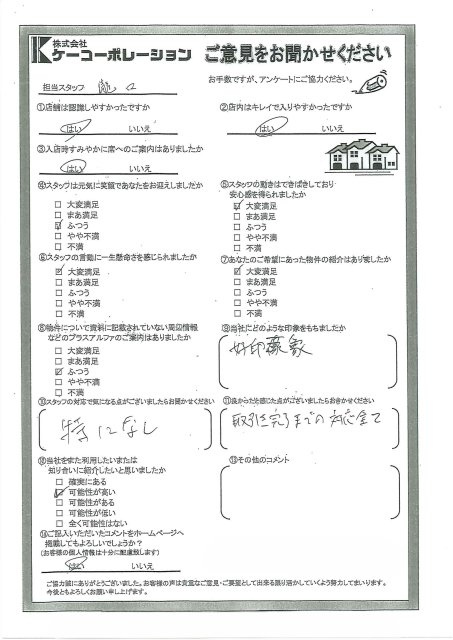 株式会社
ケーコーポレーション ご意見をお聞かせください
お手数ですが、アンケートにご協力ください。
担当スタッフ
①店舗は認識しやすかったですか
はい いいえ
②店内はキレイで入りやすかったですか
はい いいえ
③入店時すみやかに席へのご案内はありましたか
はい いいえ
④スタッフは元気に笑顔であなたをお迎えしましたか
□ 大変満足
□ まあ満足
☑ ふつう
□ やや不満
□ 不満
⑤スタッフの動きはてきぱきしており
安心感を得られましたか
☑ 大変満足
□ まあ満足
□ ふつう
□ やや不満
□ 不満
⑥スタッフの言動に一生懸命さを感じられましたか
☑ 大変満足
□ まあ満足
□ ふつう
□ やや不満
□ 不満
⑦あなたのご希望にあった物件の紹介はありましたか
☑ 大変満足
□ まあ満足
□ ふつう
□ やや不満
□ 不満
⑧物件について資料に記載されていない周辺情報
などのプラスアルファのご案内はありましたか
□ 大変満足
□ まあ満足
☑ ふつう
□ やや不満
□ 不満
⑨当社にどのような印象をもちましたか
好印象
⑩スタッフの対応で気になる点がございましたらお聞かせください
特になし
⑪良かったと感じた点がございましたらお聞かせください
取引完了までの対応全て
⑫当社をまた利用したいまたは
知り合いに紹介したいと思いましたか
□ 確実にある
☑ 可能性が高い
□ 可能性がある
□ 可能性が低い
□ 全く可能性はない
⑬その他のコメント
⑭ご記入いただいたコメントをホームページへ
掲載してもよろしいでしょうか？
(お客様の個人情報は十分に配慮致します)
はい いいえ
ご協力誠にありがとうございました。お客様の声は貴重なご意見・ご要望として出来る限り活かしていくよう努力してまいります。
今後ともよろしくお願い申し上げます。